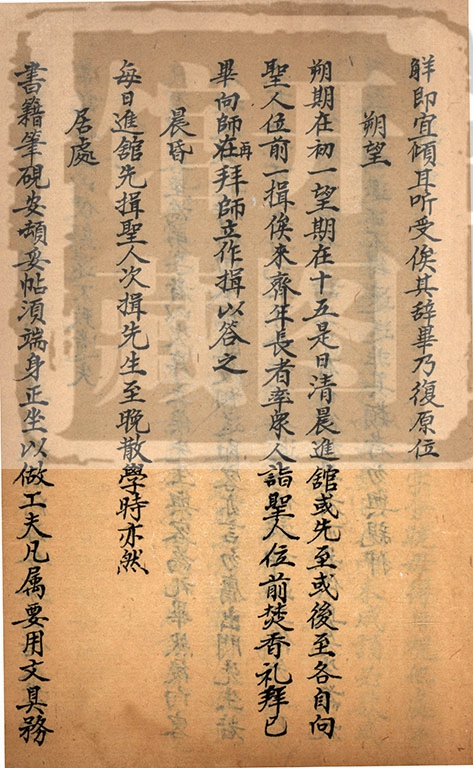 觧即宜傾耳听受俟其辞畢乃復原位
朔望
朔期在初一望期在十五是日清晨進舘或先至或後至各自向
聖人位前一揖俟来齊年長者率衆人詣聖人位前焚香礼拜已
畢向師在再拜師立作揖以答之
晨昏
每日進舘先揖聖人次揖先生至晚散學時亦然
居處
書籍筆硯安頓妥帖湏端身正坐以做工夫凡属要用文具務